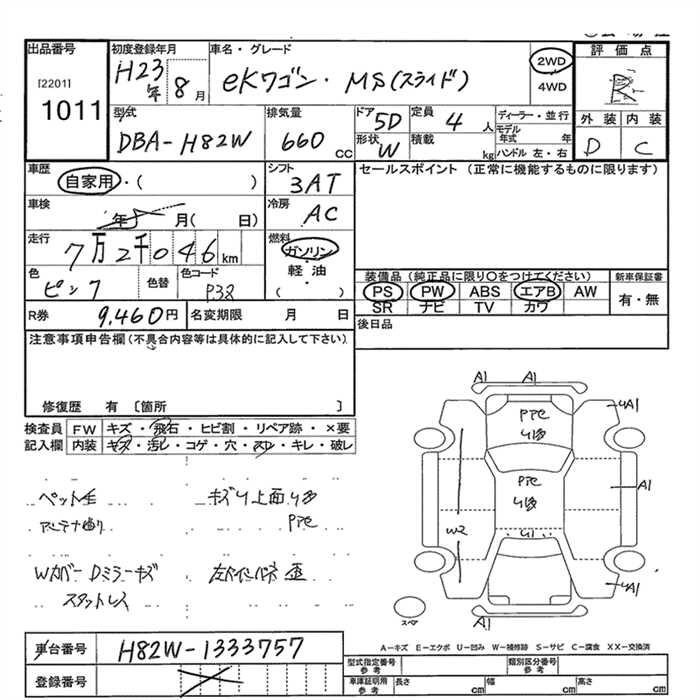 出品番号
[2201]
1011
初度登録年月
H23年 8月
車名・グレード
eKワゴン・ MS(スライド)
2WD
4WD
評価点
R
外装 内装
D C
型式
DBA-H82W
排気量
660 cc
ドア
5D
形状
W
定員
4 人
積載
kg
ディーラー・並行
モデル年式 年
ハンドル 左・右
車歴
自家用・( )
シフト
3AT
車検
年 月( 日)
冷房
AC
走行
7万2千046km
燃料
ガソリン・
軽油・
( )
色
ピンク
色替
色コード
P38
R券
9,460円
名変期限 月 日
セールスポイント (正常に機能するものに限ります)
装備品 (純正品に限り○をつけてください)
PS PW ABS エアB AW
SR ナビ TV カワ
新車保証書
有・無
後日品
注意事項申告欄(不具合内容等は具体的に記入して下さい)
修復歴 有 〔箇所 〕
検査員記入欄
FW キズ・飛石・ヒビ割・リペア跡・×要
内装 キズ・汚レ・コゲ・穴・スレ・キレ・破レ
ペット毛
アンテナ曲り
Wカバー Dミラーキズ
スタットレス
キズU上面U多
左
歪
A1 A1
U多
UA1
W2
U多
A1
U1
UA1
A1
スペア
A―キズ E―エクボ U―凹み W―補修跡 S―サビ C―腐食 XX―交換済
車台番号
H82W-1333757
登録番号
型式指定番号
参考
類別区分番号
参考
車庫証明用
参考
長さ cm
幅 cm
高さ cm